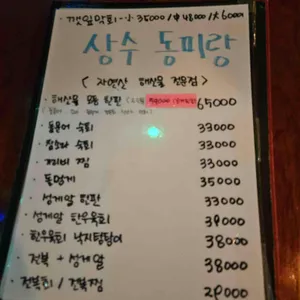 · 깻잎막회-소 35000 / 중 48000 / 大 60000
상수 동미랑
< 자연산 해산물 전문점 >
· 해산물 모듬 한판 65000
· 돌문어 숙회 33000
· 참소라 숙회 33000
· 찜 33000
· 돌멍게 35000
· 성게알 한판 33000
· 성게알 한우육회 39000
· 한우육회 낙지탕탕이 38000
· 전복 + 성게알 38000
· 전복회 / 전복찜 29000